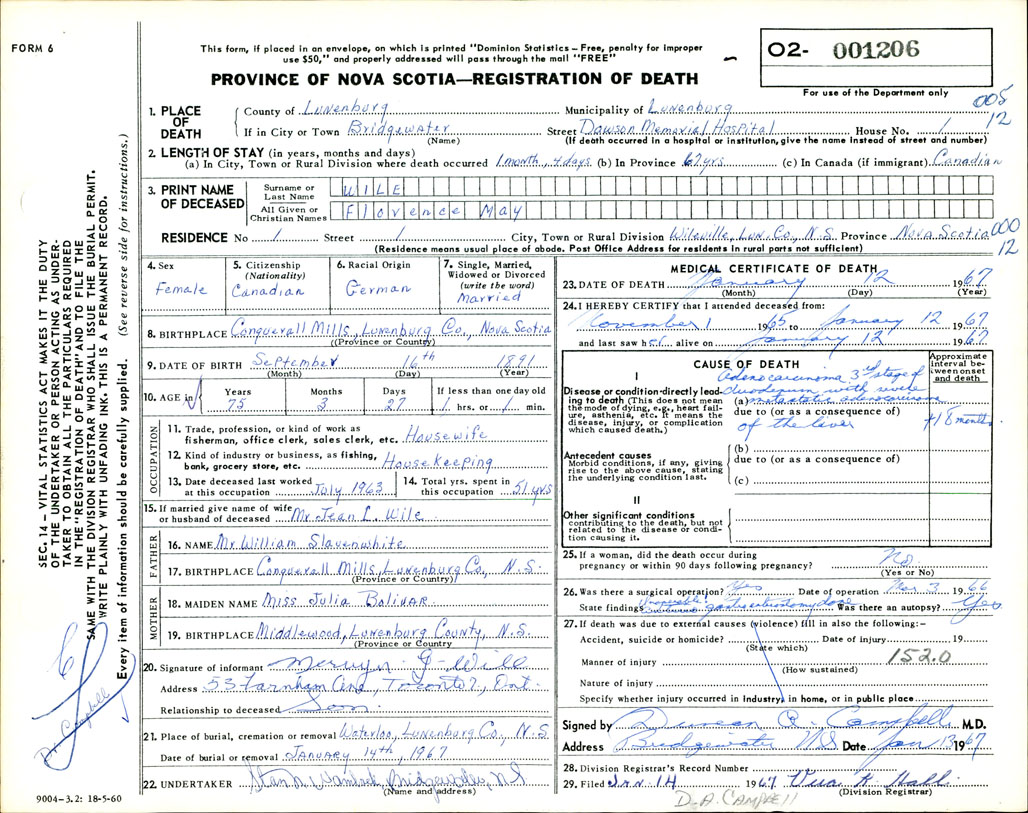 FORM 6
This form, if placed in an envelope, on which is printed "Dominion Statistics – Free, penalty for improper
use $50," and properly addressed will pass through the mail "FREE"
O2- 001206
For use of the Department only
PROVINCE OF NOVA SCOTIA—REGISTRATION OF DEATH
005
12
1. PLACE OF DEATH
County of Lunenburg Municipality of Lunenburg
If in City or Town Bridgewater Street Dawson Memorial Hospital House No. /
(Name) (If death occurred in a hospital or institution, give the name instead of street and number)
2. LENGTH OF STAY (in years, months and days)
(a) In City, Town or Rural Division where death occurred 1 month, 4 days (b) In Province 67 yrs (c) In Canada (if immigrant) Canadian
3. PRINT NAME OF DECEASED
Surname or Last Name WILE
All Given or Christian Names Florence May
000
12
RESIDENCE No / Street / City, Town or Rural Division Wileville, Lun. Co., N. S. Province Nova Scotia
(Residence means usual place of abode. Post Office Address for residents in rural parts not sufficient)
4. Sex
Female
5. Citizenship
(Nationality)
Canadian
6. Racial Origin
German
7. Single, Married,
Widowed or Divorced
(write the word)
Married
8. BIRTHPLACE Conquerall Mills, Lunenburg Co., Nova Scotia
(Province or Country)
9. DATE OF BIRTH September 16th 1891
(Month) (Day) (Year)
10. AGE in
Years Months Days If less than one day old
75 3 27 / hrs. or / min.
OCCUPATION
11. Trade, profession, or kind of work as
fisherman, office clerk, sales clerk, etc. Housewife
12. Kind of industry or business, as fishing,
bank, grocery store, etc. Housekeeping
13. Date deceased last worked
at this occupation July 1963
14. Total yrs. spent in
this occupation 51 yrs
15. If married give name of wife
or husband of deceased Mr. Jean L. Wile
FATHER
16. NAME Mr William Slavenwhite
17. BIRTHPLACE Conquerall Mills, Lunenburg Co., N. S.
(Province or Country)
MOTHER
18. MAIDEN NAME Miss Julia Bolivar
19. BIRTHPLACE Middlewood, Lunenburg County, N. S.
(Province or Country
20. Signature of informant
Address 53 Farnham Ave, Toronto 7, Ont.
Relationship to deceased Son
21. Place of burial, cremation or removal Waterloo, Lunenburg Co., N. S
Date of burial or removal JANUARY 14th, 1967
22. UNDERTAKER Bridgewater, N S
(Name and address)
9004–3.2: 18-5-60
MEDICAL CERTIFICATE OF DEATH
23. DATE OF DEATH January 12 1967
(Month) (Day) (Year)
24. I HEREBY CERTIFY that I attended deceased from:
November 1 1965 to January 12 1967
and last saw her alive on January 12 1967
CAUSE OF DEATH
Approximate
interval between onset
and death
I
Disease or condition directly leading to death (This does not mean
the mode of dying, e.g., heart failure, asthenia, etc. It means the
disease, injury, or complication
which caused death.)
Adenocarcinoma 3rd stage of
duodenum with
(a) metastatic adenocarcinoma
due to (or as a consequence of)
of the liver
18 months
Antecedent causes
Morbid conditions, if any, giving
rise to the above cause, stating
the underlying condition last.
(b)
due to (or as a consequence of)
(c)
II
Other significant conditions
contributing to the death, but not
related to the disease or condition causing it.
25. If a woman, did the death occur during
pregnancy or within 90 days following pregnancy? No
(Yes or No)
26. Was there a surgical operation? Yes Date of operation Mar 3 1966
State findings done Was there an autopsy? Yes
27. If death was due to external causes (violence) fill in also the following:–
Accident, suicide or homicide? Date of injury 19
(State which)
Manner of injury 152.0
(How sustained)
Nature of injury
Specify whether injury occurred in industry, in home, or in public place
Signed by Duncan A. Campbell M.D.
Address Bridgewater NS Date Jan 13 1967
28. Division Registrar's Record Number
29. Filed Jan 14 1967
(Division Registrar)
D. A. CAMPBELL
SEC. 14 – VITAL STATISTICS ACT MAKES IT THE DUTY
OF THE UNDERTAKER OR PERSON ACTING AS UNDERTAKER TO OBTAIN ALL THE PARTICULARS REQUIRED
IN THE "REGISTRATION OF DEATH" AND TO FILE THE
SAME WITH THE DIVISION REGISTRAR WHO SHALL ISSUE THE BURIAL PERMIT.
WRITE PLAINLY WITH UNFADING INK. THIS IS A PERMANENT RECORD.
Every item of information should be carefully supplied. (See reverse side for instructions.)
Dr Campbell